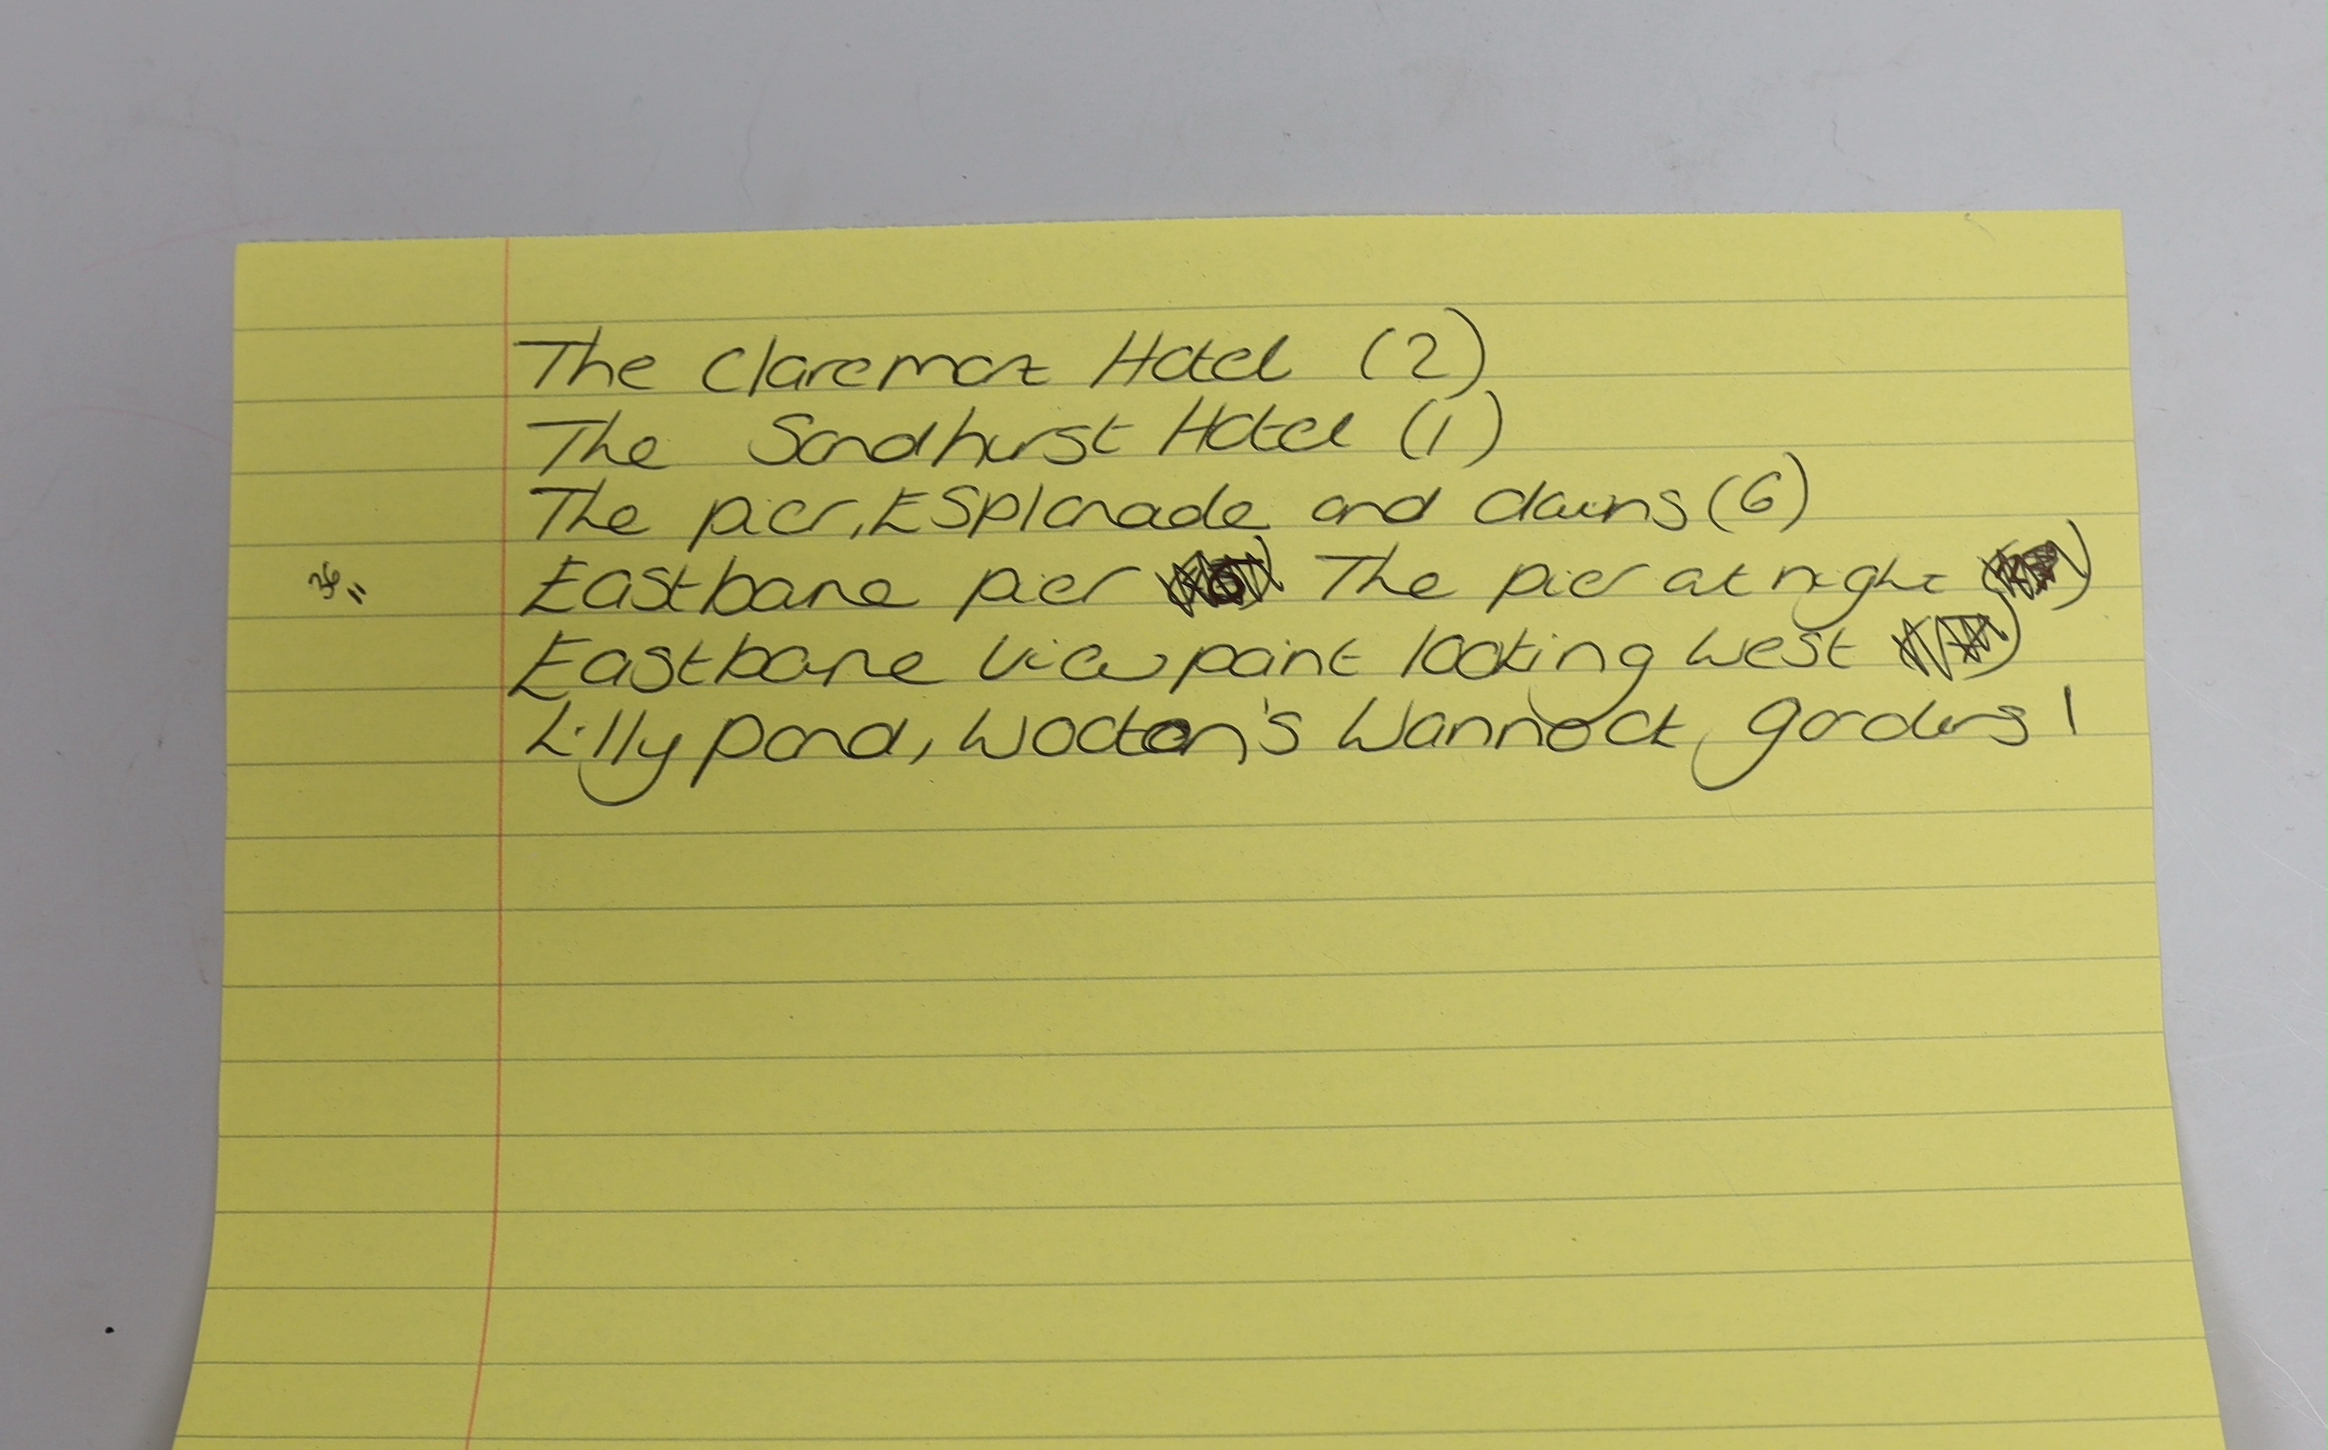 The Claremot Hotel (2)
The Sandhurst Hotel (1)
The pier, Esplanade and dawns (6)
Eastbone pier The pier at night
Eastbone view point looking west
Lilly pond, Wooton's Wannock gardens 1